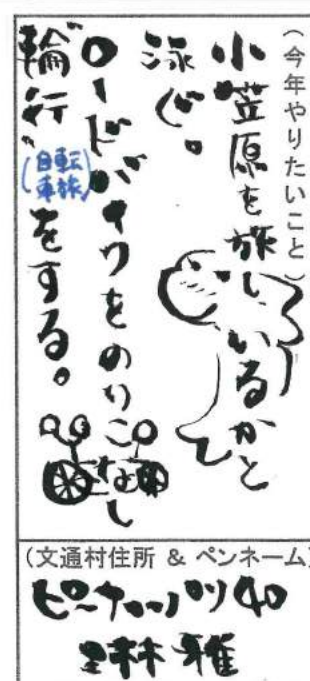 （今年やりたいこと）
小笠原を旅し、いるかと
泳ぐ。
ロードバイクをのりこなし
輪行（自転車旅）をする。
（文通村住所 & ペンネーム）
ピーナッツ40